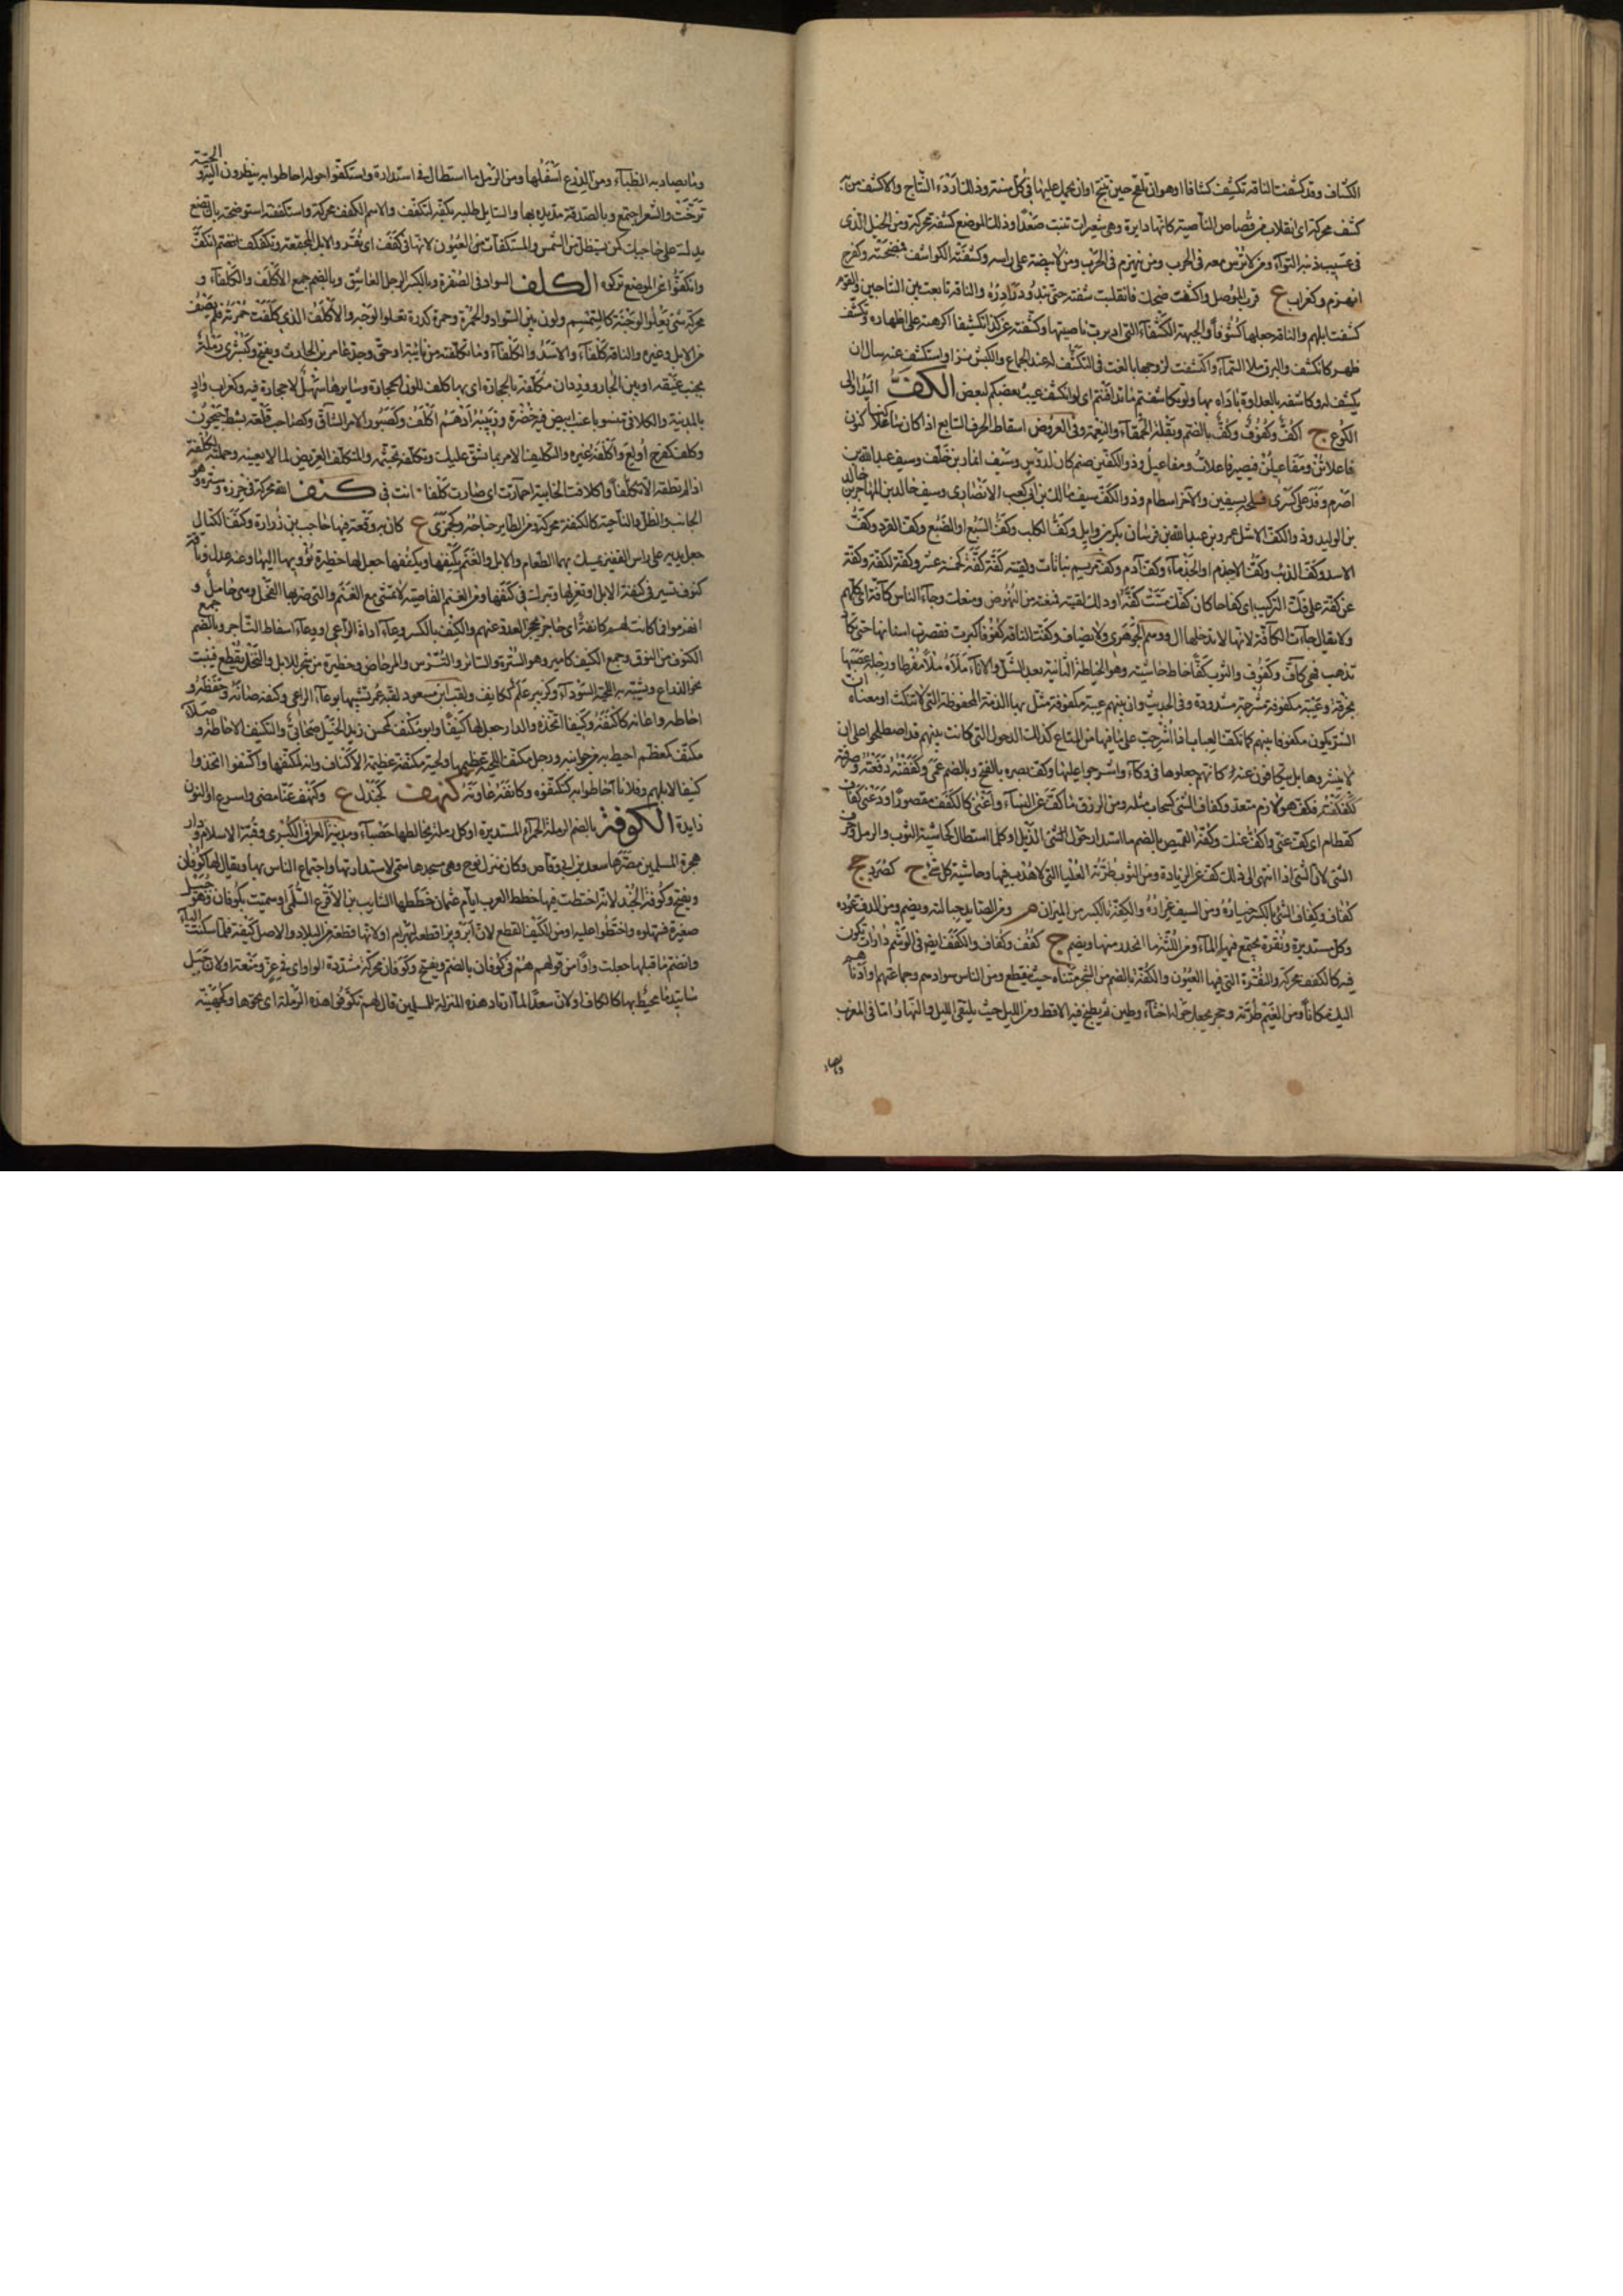 الكشاف وقد كشفت الناقة تكشف كشافا او هو ان تلقح حين تنتج او ان يحمل عليها في كل سنة وذلك اردء النتاج والاكشف من به
كشف محركة اي انقلاب من قصاص الناصية كانها دايرة وهي شعيرات تنبت صعدا وذلك الموضع كشفة محركة ومن الخيل الذي
في عسيب ذنبه التواء ومن لا ترس معه في الحرب ومن ينهزم في الحرب ومن لا بيضة على راسه وكشفته الكواشف فضحته وكفرح
انهزم وكغراب ع قرب الموصل واكشفت ضحك فانقلبت شفته حتى تبدو درادره والناقة تابعت بين النتاجين والقوم
كشفت ابلهم والناقة جعلها كشوفا والجبهة الكشفاء التي ادبرت ناصيتها وكشفته عن كذا تكشيفا اكرهته على اظهاره وتكشف
ظهر كانكشف والبرق ملا السماء واكتشفت لزوجها بالغت في التكشف له عند الجماع والكبش نزا واستكشف عنه سال ان
يكشف له وكاشفه بالعداوة باداه بها ولو تكاشفتم ما تدافنتم اي لو انكشف عيب بعضكم لبعض الكف اليد او الى
الكوع ج اكف وكفوف وكف بالضم وبقلة الحمقاء والنعمة وفي العروض اسقاط الحرف السابع اذا كان ساكنا كنون
فاعلاتن ومفاعيلن فيصير فاعلات ومفاعيل وذو الكفين صنم كان لدوس وسيف انمار بن خلف وسيف عبد الله بن
اصرم وفد على كسرى فسلحه بسيفين والاخر اسطام وذو الكف سيف مالك بن ابي كعب الانصاري وسيف خالد بن المهاجر بن خالد
بن الوليد وذو الكف الاشل عمرو بن عبد الله من فرسان بكر بن وايل وكف الكلب وكف السبع او الضبع وكف القرد وكف
الاسد وكف الذيب وكف الاجذم او الجذماء وكف ادم وكف مريم نباتات ولقيته كفة كفة كخمسة عشر وكفة لكفة وكفة
عن كفة على فك التركيب اي كفاحا كان كفك مست كفه او ذلك لقيته فمنعته من النهوض ومنعك وجاء الناس كافة اي كلهم
ولا يقال جاءت الكافة لانها لا يدخلها ال ووهم الجوهري ولا يضاف وكفت الناقة كفوفا كبرت فقصرت اسنانها حتى تكاد
تذهب فهي كاف وكفوف والثوب كفا خاط حاشيته وهو الخياطة الثانية بعد الشل والاناء ملاه ملا مفرطا ورجله عصبها
بخرقة وعيبة مكفوفة مشرجة مشدودة وفي الحديث وان بينهم عيبة مكفوفة مثل بها الذمة المحفوظة التي لا تنكث او معناه ان
الشر يكون مكفوفا بينهم كما تكف العياب اذا اشرجت على ما فيها من المتاع كذلك الذحول التي كانت بينهم قد اصطلحوا على ان
لا ينشروها بل يتكافون عنها كانهم جعلوها في وكاء واشرجوا عليها وكف بصره بالفتح وبالضم عمى وكففته دفعته وصرفته
ككفكفته فكف هو لازم متعد وكفاف الشي كسحاب مثله ومن الرزق ما كف عن الناس واغنى كالكفف مقصورا ودعني كفاف
كقطام اي كف عني واكف عنك وكفة القميص بالضم ما استدار حول الذيل او كل ما استطال كحاشية الثوب والرمل وحرف
الشي لان الشي اذا انتهى الى ذلك كف عن الزيادة ومن الثوب طرته العليا التي لا هدب فيها وحاشية كل شي ج كصرد جج
كفاف وكفاف الشي بالكسر خياره ومن السيف غراره والكفة بالكسر من الميزان م ومن الصايد حبالته ويضم ومن الدف عوده
وكل مستديرة ونقرة يجتمع فيها الماء ومن اللثة ما انحدر منها ويضم ج كفف وكفاف والكفف ايضا في الوشم دارات تكون
فيه كالكفف محركة والنقرة التي فيها العيون والكفة بالضم من الشجر منتهاه حيث ينقطع ومن الناس سوادهم وجماعتهم وادناهم
اليك مكانا ومن الغيم طرته وحجر يجعل حوله اخثاء وطين ثم يطبخ فيه الاقط ومن الليل حيث يلتقي الليل والنهار اما في المغرب
وما يصاد
وما يصاد به الظباء ومن الدرع اسفلها ومن الرمل ما استطال في استدارة واستكفوا حوله احاطوا به ينظرون اليه والحية
ترحت والشعر اجتمع وبالصدقة مد يده بها والسايل طلب بكفه كتكفف والاسم الكفف محركة واستكففته استوضحته بان تضع
يدك على حاجبك كمن يستظل من الشمس والمستكفات من العيون لانها في كفف اي نقر والابل المجتمعة وتكفكف انكف
وانكفوا عن الموضع تركوه الكلف السواد في الصفرة وبالكسر الرجل العاشق وبالضم جمع الاكلف والكلفاء و
محركة شي يعلو الوجنة كالسمسم ولون بين السواد والحمرة وحمرة كدرة تعلو الوجه والاكلف الذي كلفت حمرته فلم تصف
من الابل وغيره والناقة كلفاء والاسد والكلفاء وما تكلفته من نايبة او حق وجد عامر بن الحارث ويفتح وكبشرى رملة
بجنب غيقة او بين الجار وودان مكلفة بالحجارة اي بها كلف للون الحجارة وسايرها سهل لا حجارة فيه وكغراب واد
بالمدينة والكلافي منسوبا عنب ابيض فيه خضرة وزبيبه ادهم اكلف وكصبور الامر الشاق وكصاحب قلعة بشط جيحون
وكلف كفرح اولع واكلفه غيره والتكليف الامر بما يشق عليك وتكلفه تجشمه والمتكلف العريض لما لا يعنيه وحملته تكلفة
اذا لم تطقه الا تكلفا واكلافت الخابية احمارت اي صارت كلفا انت في كنف الله محركة في حرزه وستره وهو
الجانب والظل والناحية كالكنفة محركة ومن الطاير جناحه وكجمزى ع كان به وقعة فيها حاجب بن زرارة وكنف الكيال
جعل يديه على راس القفيز يمسك بهما الطعام والابل والغنم يكنفها ويكنفها جعل لها حظيرة يؤويها اليها وعنه عدل وناقة
كنوف تسير في كنفة الابل او تعتزلها وتبرك في كنفها ومن الغنم القاصية لا تمشي مع الغنم والتي ضربها الفحل وهي حامل و
انهزموا فما كانت لهم كانفة اي حاجز يحجز العدو عنهم والكنف بالكسر وعاء اداة الراعي او وعاء اسقاط التاجر وبالضم جمع
الكنوف من النوق وجمع الكنيف كامير وهو السترة والساتر والترس والمرحاض وحظيرة من شجر للابل والنخل يقطع فينبت
نحو الذراع ويشبه به اللحية السوداء وكزبير علم ككانف ولقب ابن مسعود لقبه عمر تشبيها بوعاء الراعي وكنفه صانه وحفظه و
احاطه واعانه كاكنفه وكنيفا اتخذه والدار جعل لها كنيفا وابو مكنف كمحسن زيد الخيل صحابي والتكنيف الاحاطة وصلاء
مكنف كمعظم احيط به من جوانبه ورجل مكنف اللحية عظيمها ولحية مكنفة عظيمة الاكناف وانه لمكنفها واكتنفوا اتخذوا
كنيفا لابلهم وفلانا احاطوا به كتكنفوه وكانفه عاونه كنهف كجندل ع وكنهف عنا مضى واسرع او النون
زايدة الكوفة بالضم الرملة الحمراء المستديرة او كل رملة تخالطها حصباء ومدينة العراق الكبرى وقبة الاسلام ودار
هجرة المسلمين مصرها سعد بن ابي وقاص وكان منزل نوح وبنى مسجدها سمي لاستدارتها واجتماع الناس بها ويقال لها كوفان
ويفتح وكوفة الجند لانه اختطت فيها خطط العرب ايام عثمان خططها السايب بن الاقرع الثقفي او سميت بكوفان وهو جبيل
صغير فسهلوه واختطوا عليه او من الكيف القطع لان ابرويز اقطعه لبهرام او لانها قطعة من البلاد والاصل كيفة فلما سكنت الياء
وانضم ما قبلها جعلت واوا او من قولهم هم في كوفان بالضم ويفتح وكوفان محركة مشددة الواو اي في عز ومنعة او لان جبل
ساتيدما محيط بها كالكاف او لان سعدا لما ارتاد هذه المنزلة للمسلمين قال لهم تكوفوا في هذه الرملة اي نحوها وكجهينة